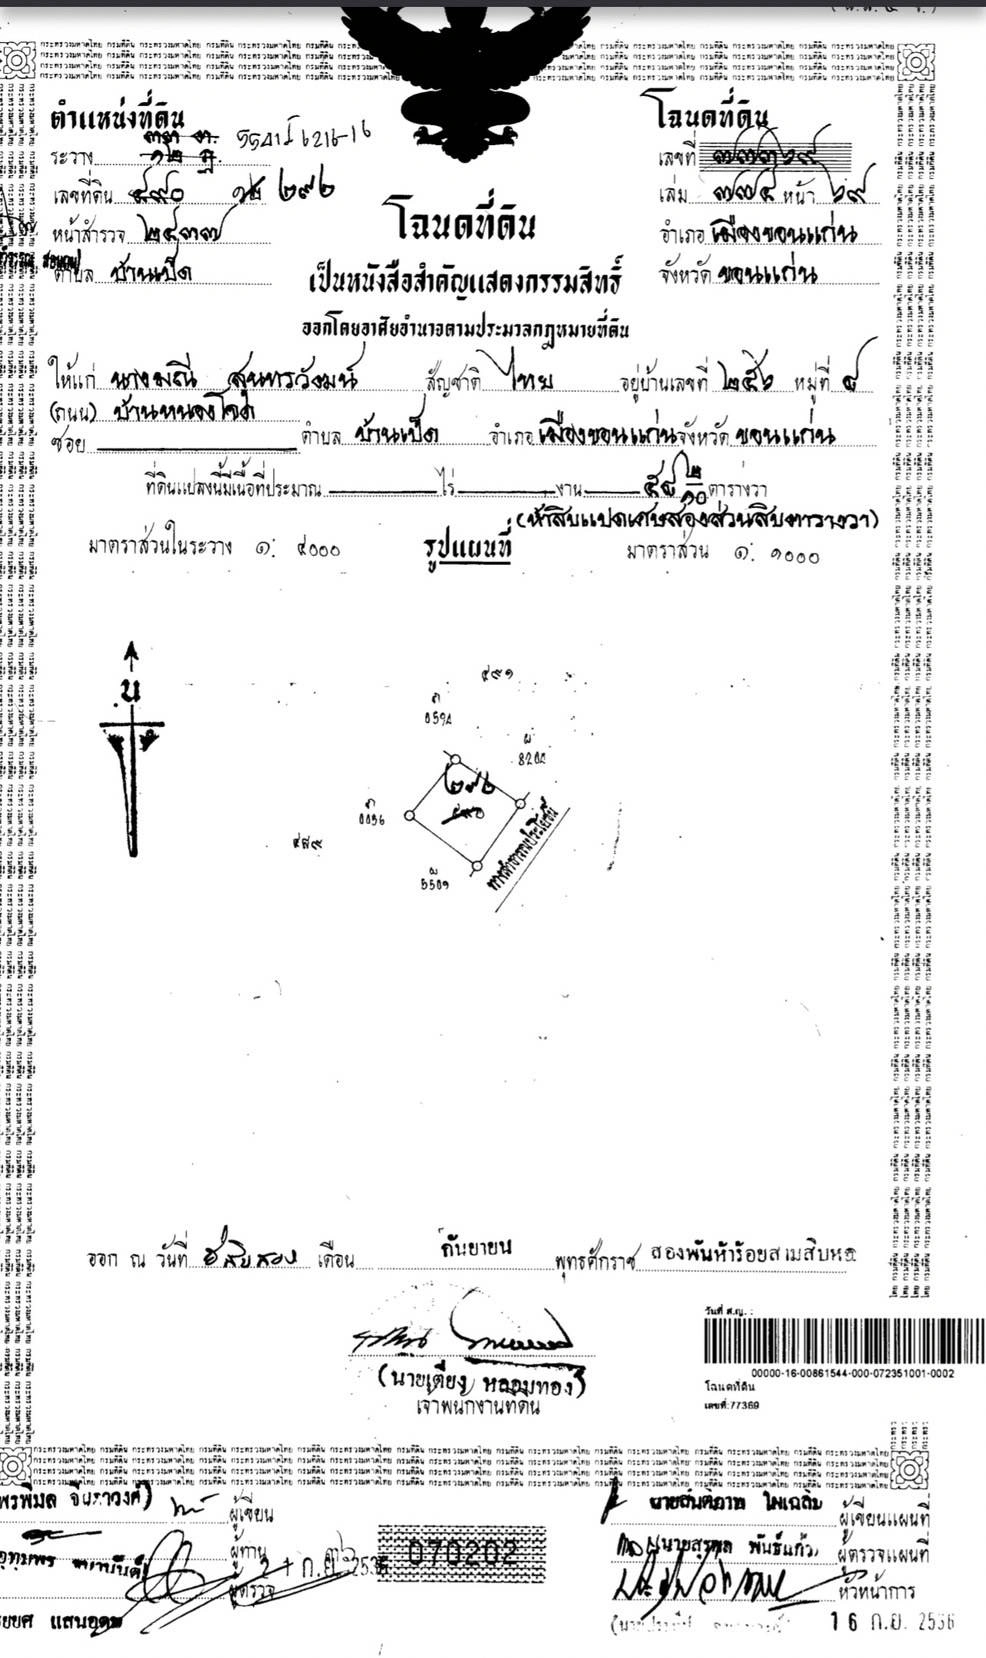 ตำแหน่งที่ดิน
ระวาง 5541 I 6216-16
เลขที่ดิน ๔๙๐ ๒๙๖
หน้าสำรวจ ๒๔๓๗
ตำบล บ้านเป็ด
โฉนดที่ดิน
เลขที่ ๗๗๓๖๙
เล่ม ๗๗๔ หน้า ๖๙
อำเภอ เมืองขอนแก่น
จังหวัด ขอนแก่น
โฉนดที่ดิน
เป็นหนังสือสำคัญแสดงกรรมสิทธิ์
ออกโดยอาศัยอำนาจตามประมวลกฎหมายที่ดิน
ให้แก่ นางมณี สุนทรวังมน์ สัญชาติ ไทย อยู่บ้านเลขที่ ๒๕๖ หมู่ที่ ๘
(ถนน) บ้านหนองโจด
ซอย ตำบล บ้านเป็ด อำเภอ เมืองขอนแก่น จังหวัด ขอนแก่น
ที่ดินแปลงนี้มีเนื้อที่ประมาณ ไร่ งาน ๕๘ ๒/๑๐ ตารางวา
(ห้าสิบแปดเศษสองส่วนสิบตารางวา)
มาตราส่วนในระวาง ๑: ๔๐๐๐ รูปแผนที่ มาตราส่วน ๑: ๑๐๐๐
น
๔๙๑
0594
ผ
8204
๒๙๖
๔๙๐
0056
๔๘๙
ผ
5509
ทางสาธารณประโยชน์
ออก ณ วันที่ ยี่สิบสอง เดือน กันยายน พุทธศักราช สองพันห้าร้อยสามสิบหก
(นายเตียง หลอมทอง)
เจ้าพนักงานที่ดิน
วันที่ ส.ญ. :
00000-16-00861544-000-072351001-0002
โฉนดที่ดิน
เลขที่:77369
ผู้เขียน
ผู้ทาน
ผู้ตรวจ
070202
ผู้เขียนแผนที่
ผู้ตรวจแผนที่
หัวหน้าการ
16 ก.ย. 2536